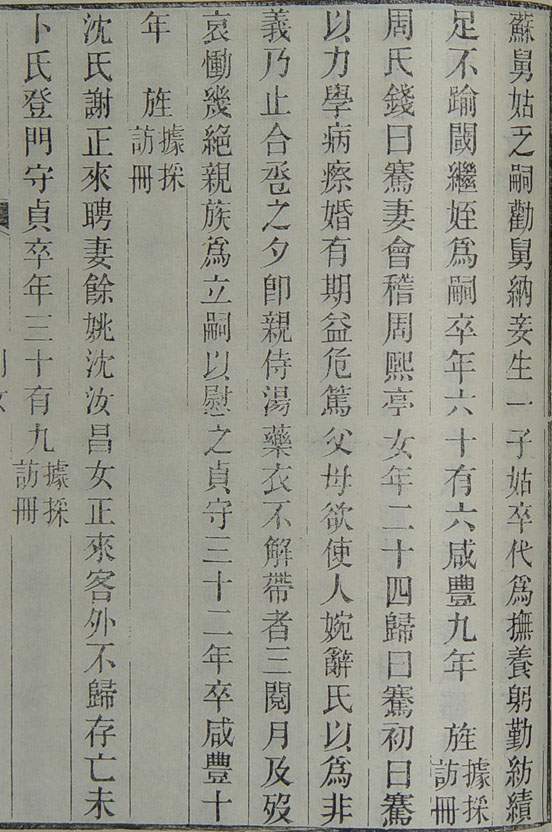 蘇舅姑乏嗣勸舅納妾生一子姑卒代爲撫養躬勤紡績
足不踰閾繼姪爲嗣卒年六十有六咸豐九年 旌據採訪冊
周氏錢日騫妻會稽周熙亭女年二十四歸日騫初日騫
以力學病瘵婚有期益危篤父母欲使人婉辭氏以爲非
義乃止合卺之夕卽親侍湯藥衣不解帶者三閱月及歿
哀慟幾絕親族爲立嗣以慰之貞守三十二年卒咸豐十
年 旌據採訪冊
沈氏謝正來聘妻餘姚沈汝昌女正來客外不歸存亡未
卜氏登門守貞卒年三十有九據採訪冊